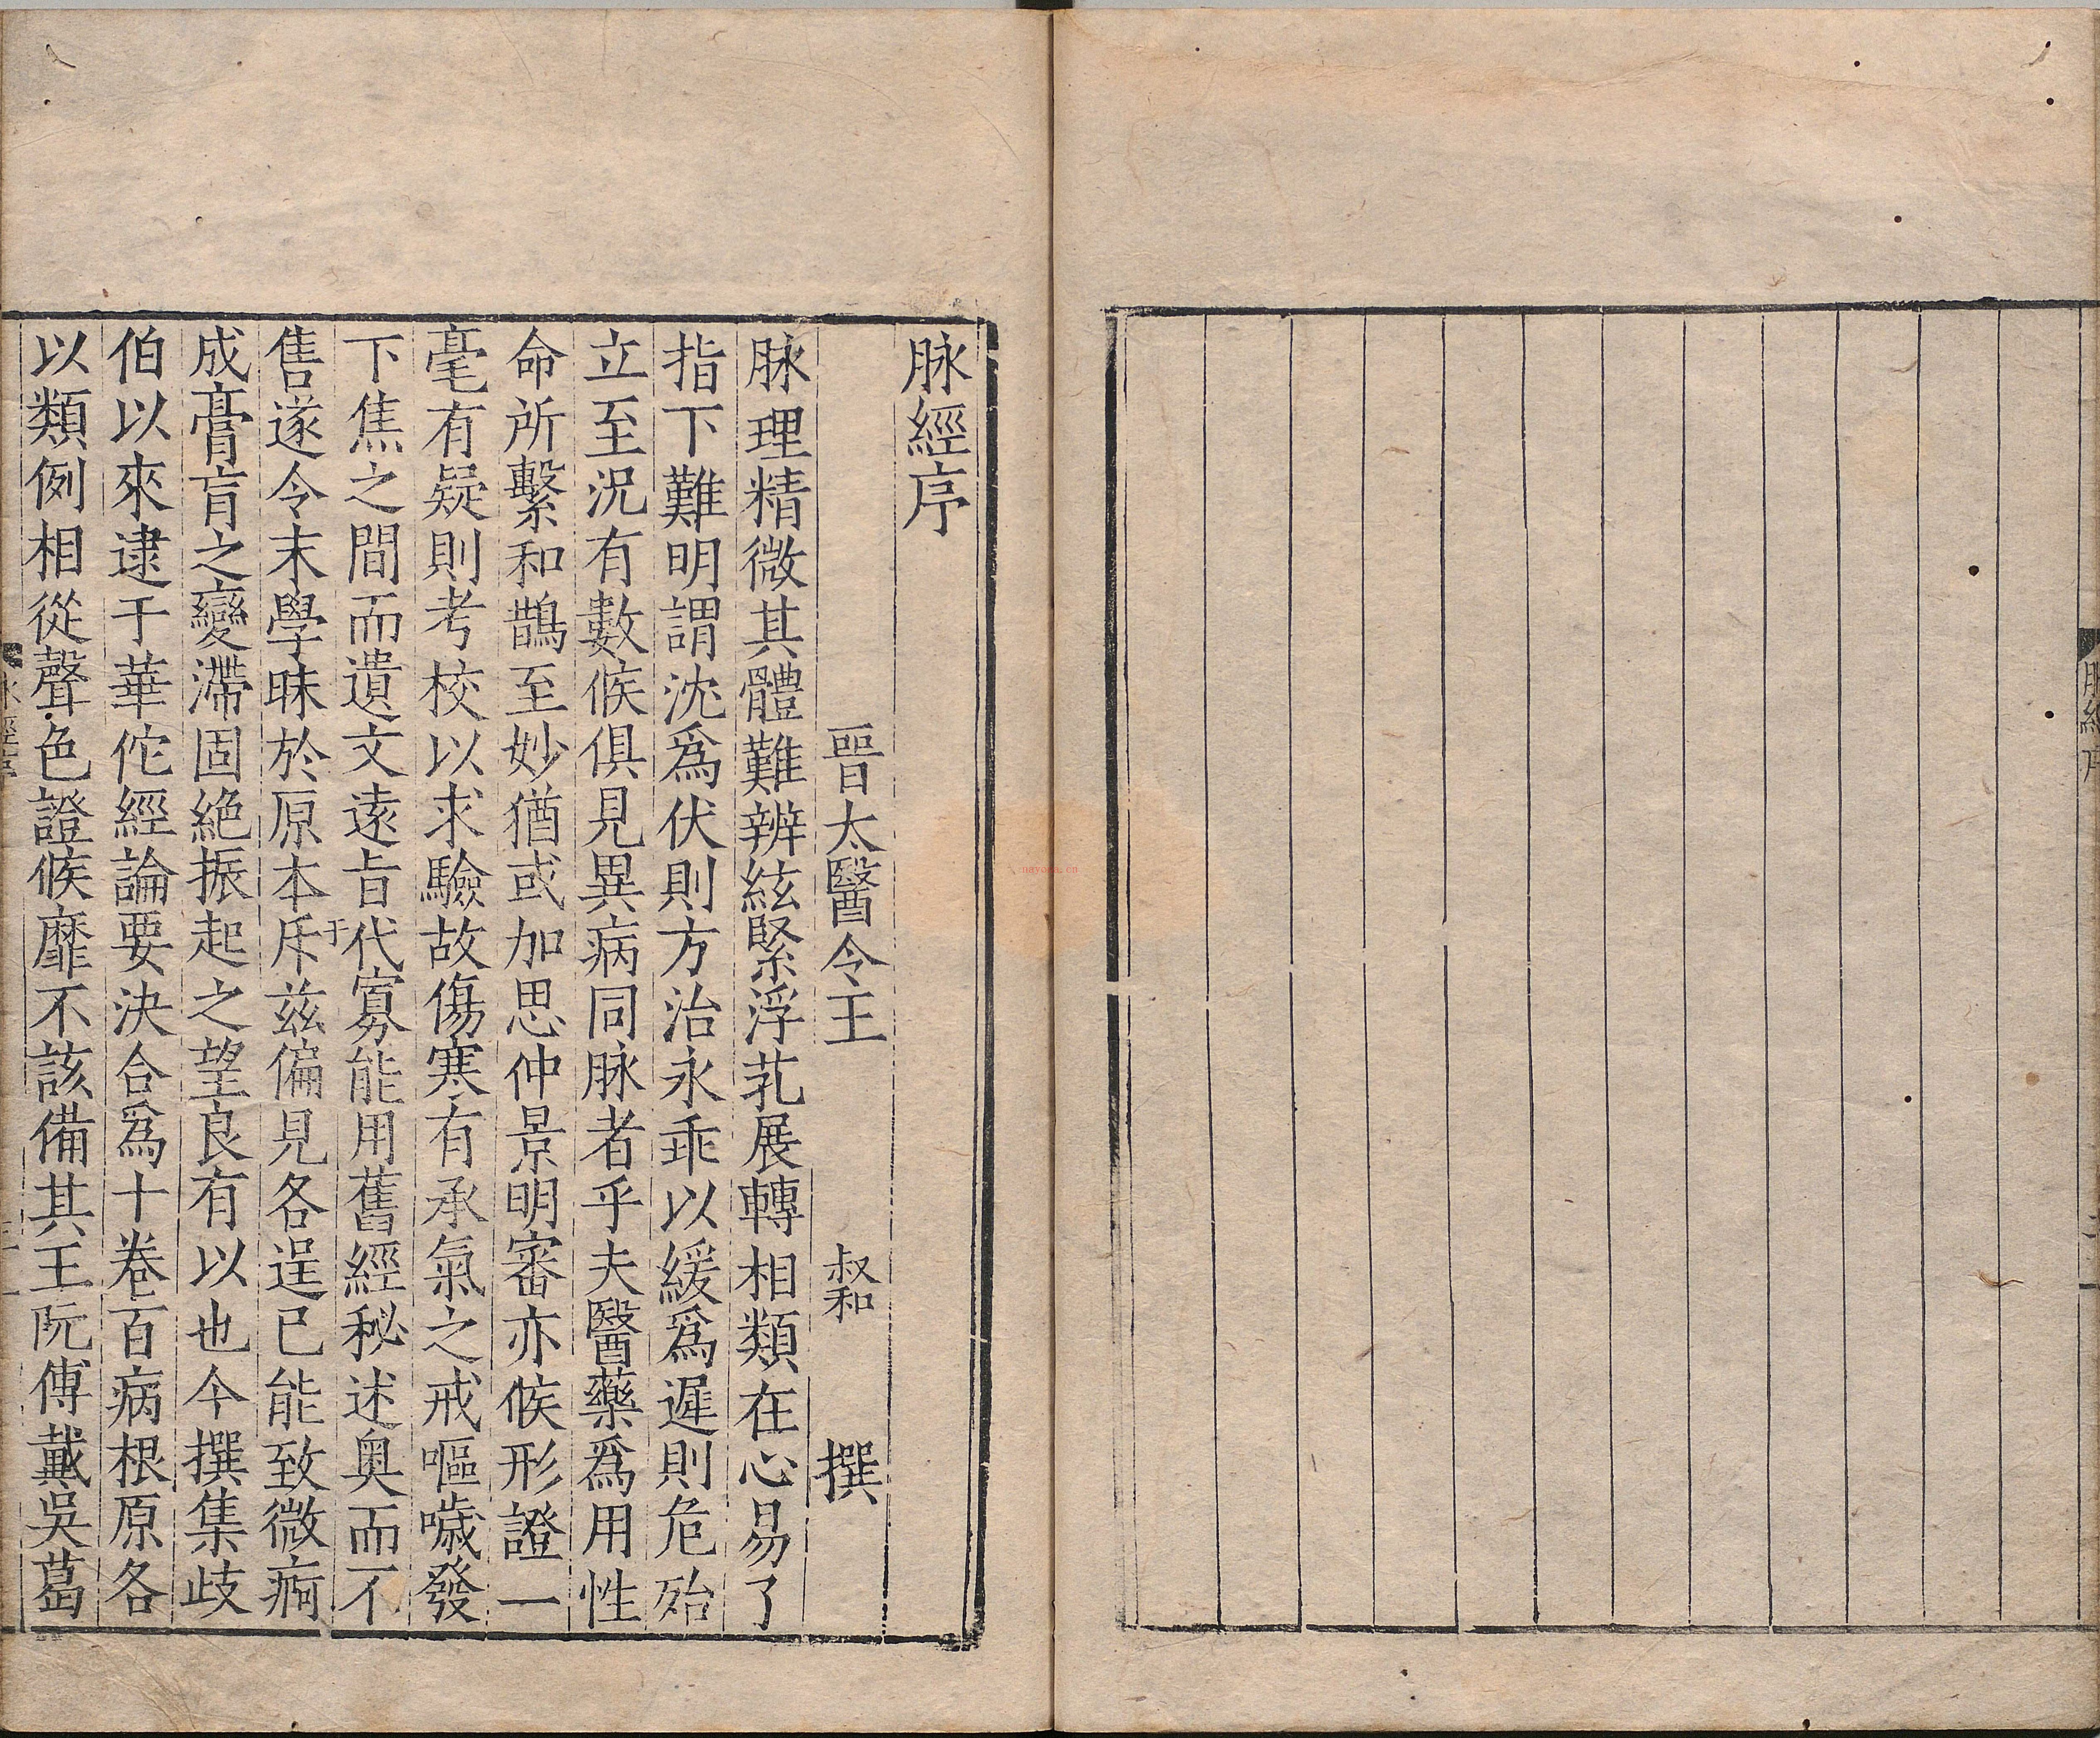 脉經序
晉太醫令王 叔和 撰
脉理精微其體難辨絃緊浮芤展轉相類在心易了
指下難明謂沈爲伏則方治永乖以緩爲遲則危殆
立至況有數候俱見異病同脉者乎夫醫藥爲用性
命所繫和鵲至妙猶或加思仲景明審亦候形證一
毫有疑則考校以求驗故傷寒有承氣之戒嘔噦發
下焦之間而遺文遠旨代寡能用舊經秘述奧而不
售遂令末學昧於原本斥于兹偏見各逞已能致微痾
成膏肓之變滯固絶振起之望良有以也今撰集歧
伯以來逮于華佗經論要決合爲十卷百病根原各
以類例相從聲色證候靡不該備其王阮傅戴吳葛